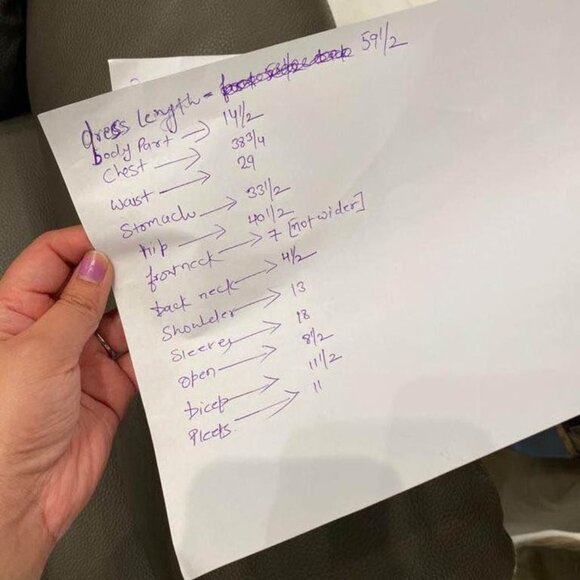 dress length = 59 1/2
body Part → 14 1/2
Chest → 38 3/4
Waist → 29
Stomach → 33 1/2
hip → 40 1/2
front neck → 7 [not wider]
back neck → 4 1/2
Shoulder → 13
Sleeves → 18
open → 8 1/2
bicep → 11 1/2
Pleets → 11